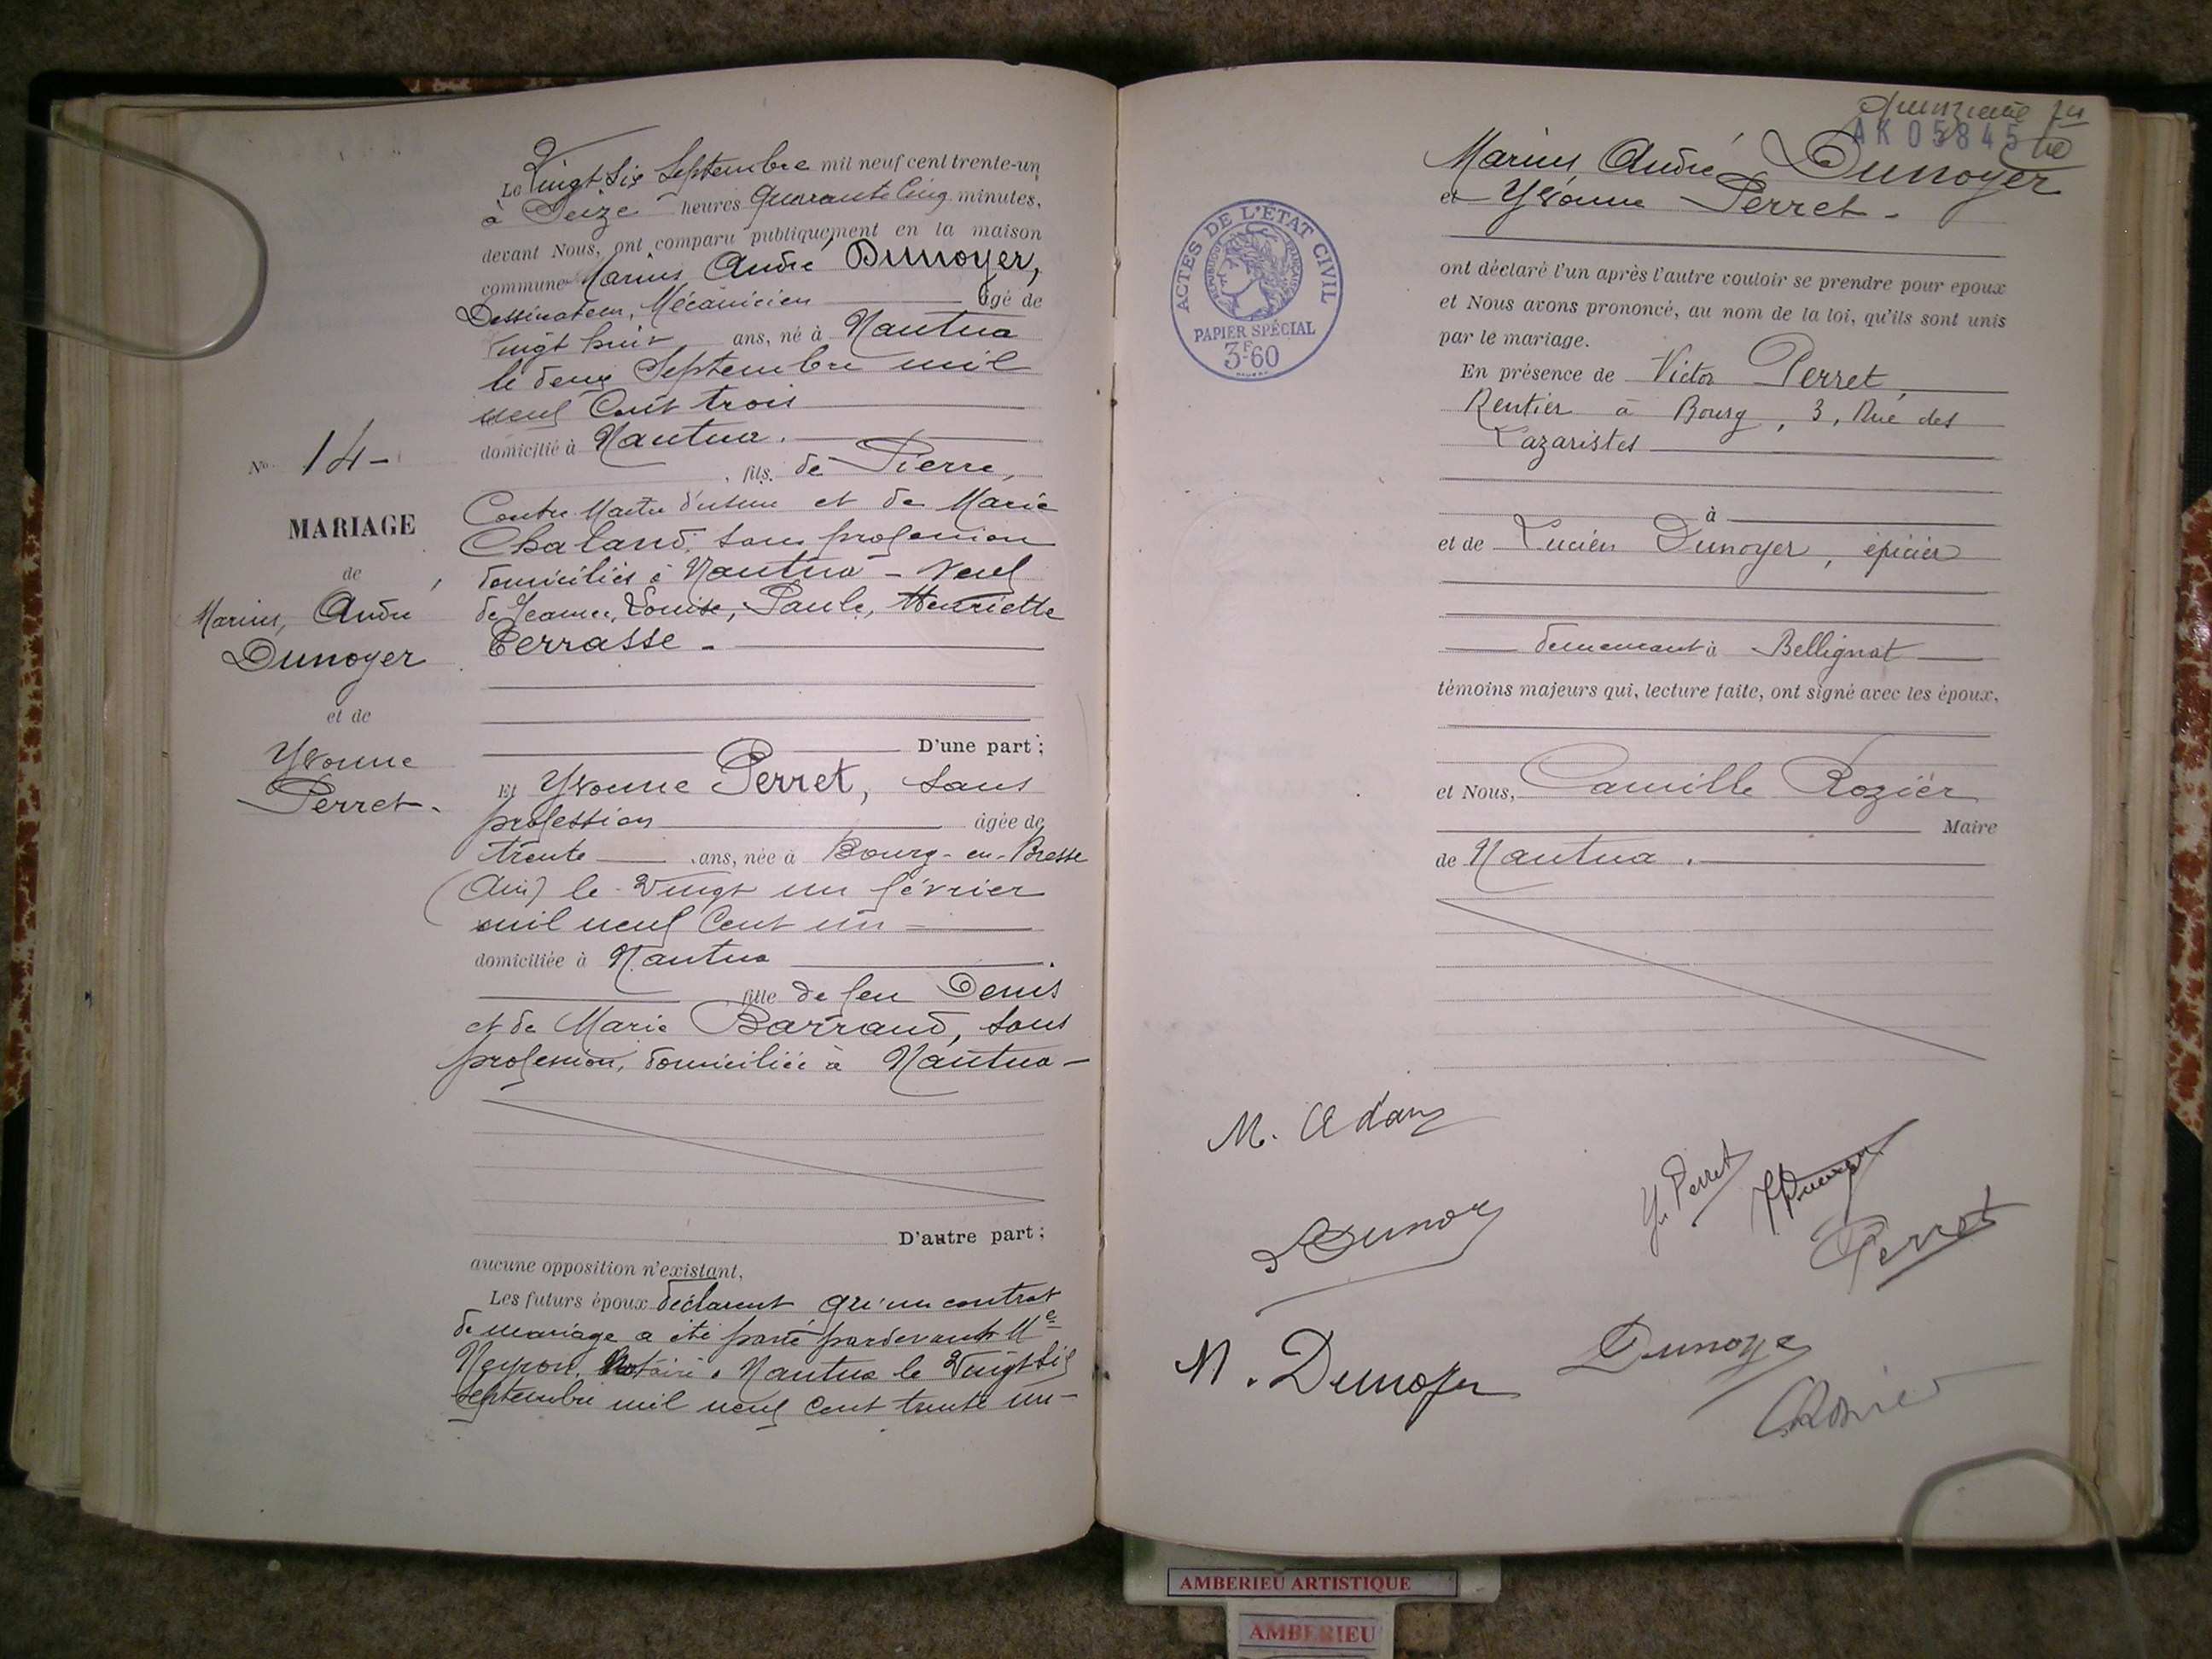 Le Vingt Six Septembre mil neuf cent trente-un
à Seize heures Quarante Cinq minutes,
devant Nous, ont comparu publiquement en la maison
commune Marius André Dunoyer,
Dessinateur, Mécanicien âgé de
Vingt huit ans, né à Nantua
le deux Septembre mil
neuf Cent trois
domicilié à Nantua.
fils de Pierre,
Contre Maître d'usine et de Marie
Chaland, sans profession
domiciliés à Nantua - Veuf
de Jeanne, Louise, Paule, Henriette
Terrasse -
D'une part ;
No 14 -
MARIAGE
de
Marius, André
Dunoyer
et de
Yvonne
Perret -
Et Yvonne Perret, sans
profession âgée de
trente ans, née à Bourg-en-Bresse
(Ain) le Vingt un février
mil neuf Cent un -
domiciliée à Nantua .
fille de feu Denis
et de Marie Barraud, sans
profession, domiciliée à Nantua -
D'autre part ;
aucune opposition n'existant,
Les futurs époux déclarent qu'un contrat
de mariage a été passé pardevant Me
Neyron, Notaire à Nantua le Vingt six
Septembre mil neuf Cent trente un -
AK 05845
Marius André Dunoyer
et Yvonne Perret -
ACTES DE L'ÉTAT CIVIL
RÉPUBLIQUE FRANÇAISE
PAPIER SPÉCIAL
3F60
ont déclaré l'un après l'autre vouloir se prendre pour époux
et Nous avons prononcé, au nom de la loi, qu'ils sont unis
par le mariage.
En présence de Victor Perret,
Rentier à Bourg, 3, Rue des
Lazaristes
à
et de Lucien Dunoyer, épicier
demeurant à Bellignat
témoins majeurs qui, lecture faite, ont signé avec les époux,
et Nous, Camille Rozier
Maire
de Nantua .
M. Adam
Y. Perret
Perret
M. Dunoyer
Dunoye
AMBERIEU ARTISTIQUE
AMBERIEU